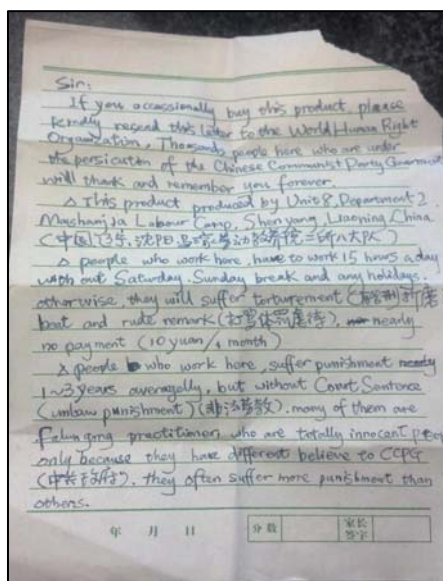 Sir:
If you occassionally buy this product, please
kindly resend this letter to the World Human Right
Organization. Thousands people here who are under
the persicution of the Chinese Communist Party Government
will thank and remember you forever.
This product produced by Unit 8, Department 2,
Mashanjia Labour Camp, Shenyang, Liaoning, China.
(中国，辽宁，沈阳，马三家劳动教养院二所八大队)
people who work here, have to work 15 hours a day
with out Saturday, Sunday break and any holidays.
otherwise, they will suffer torturement (酷刑)
beat and rude remark (打骂体罚虐待). nearly
no payment (10 yuan/1 month)
people who work here, suffer punishment
1~3 years averagelly, but without Court Sentence
(unlaw punishment) (非法劳教). many of them are
Falungong practitioner, who are totally innocent people
only because they have different believe to CCPG
(中共政府), they often suffer more punishment than
others.
年 月 日 分数 家长签字